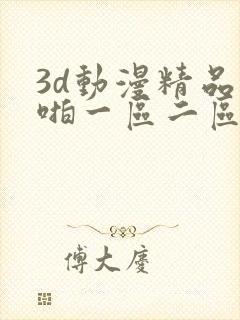 3d動漫精品
啪一區二區
傅大慶